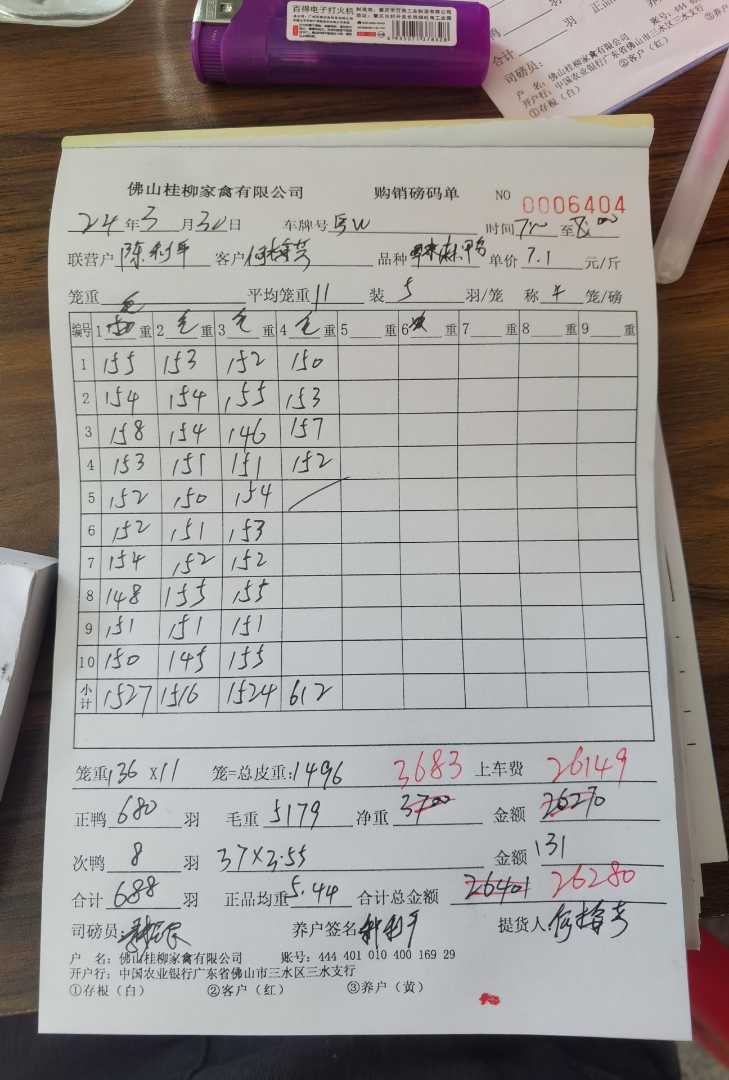 百得电子打火机
司磅员:
户 名: 佛山桂柳家禽有限公司
开户行: 中国农业银行广东省佛山市三水区三水支行
①存根（白） ②客户（红）
佛山桂柳家禽有限公司 购销磅码单 NO 0006404
24年3月30日 车牌号 时间 至
联营户 陈利平 客户 品种 单价 7.1 元/斤
笼重 毛 平均笼重 11 装 5 羽/笼 称 4 笼/磅
编号 1 重 2 毛 重 3 毛 重 4 毛 重 5 重 6 重 7 重 8 重 9 重
1 155 153 152 150
2 154 154 155 153
3 158 154 146 157
4 153 151 151 152
5 152 150 154
6 152 151 153
7 154 152 152
8 148 155 155
9 151 151 151
10 150 145 155
小计 1527 1516 1524 612
笼重 136 x11 笼=总皮重: 1496 3683 上车费 26149
正鸭 680 羽 毛重 5179 净重 3700 金额 26270
次鸭 8 羽 37×3.55 金额 131
合计 688 羽 正品均重 5.44 合计总金额 26401 26280
司磅员: 养户签名 提货人:
户 名: 佛山桂柳家禽有限公司 账号: 444 401 010 400 169 29
开户行: 中国农业银行广东省佛山市三水区三水支行
①存根（白） ②客户（红） ③养户（黄）